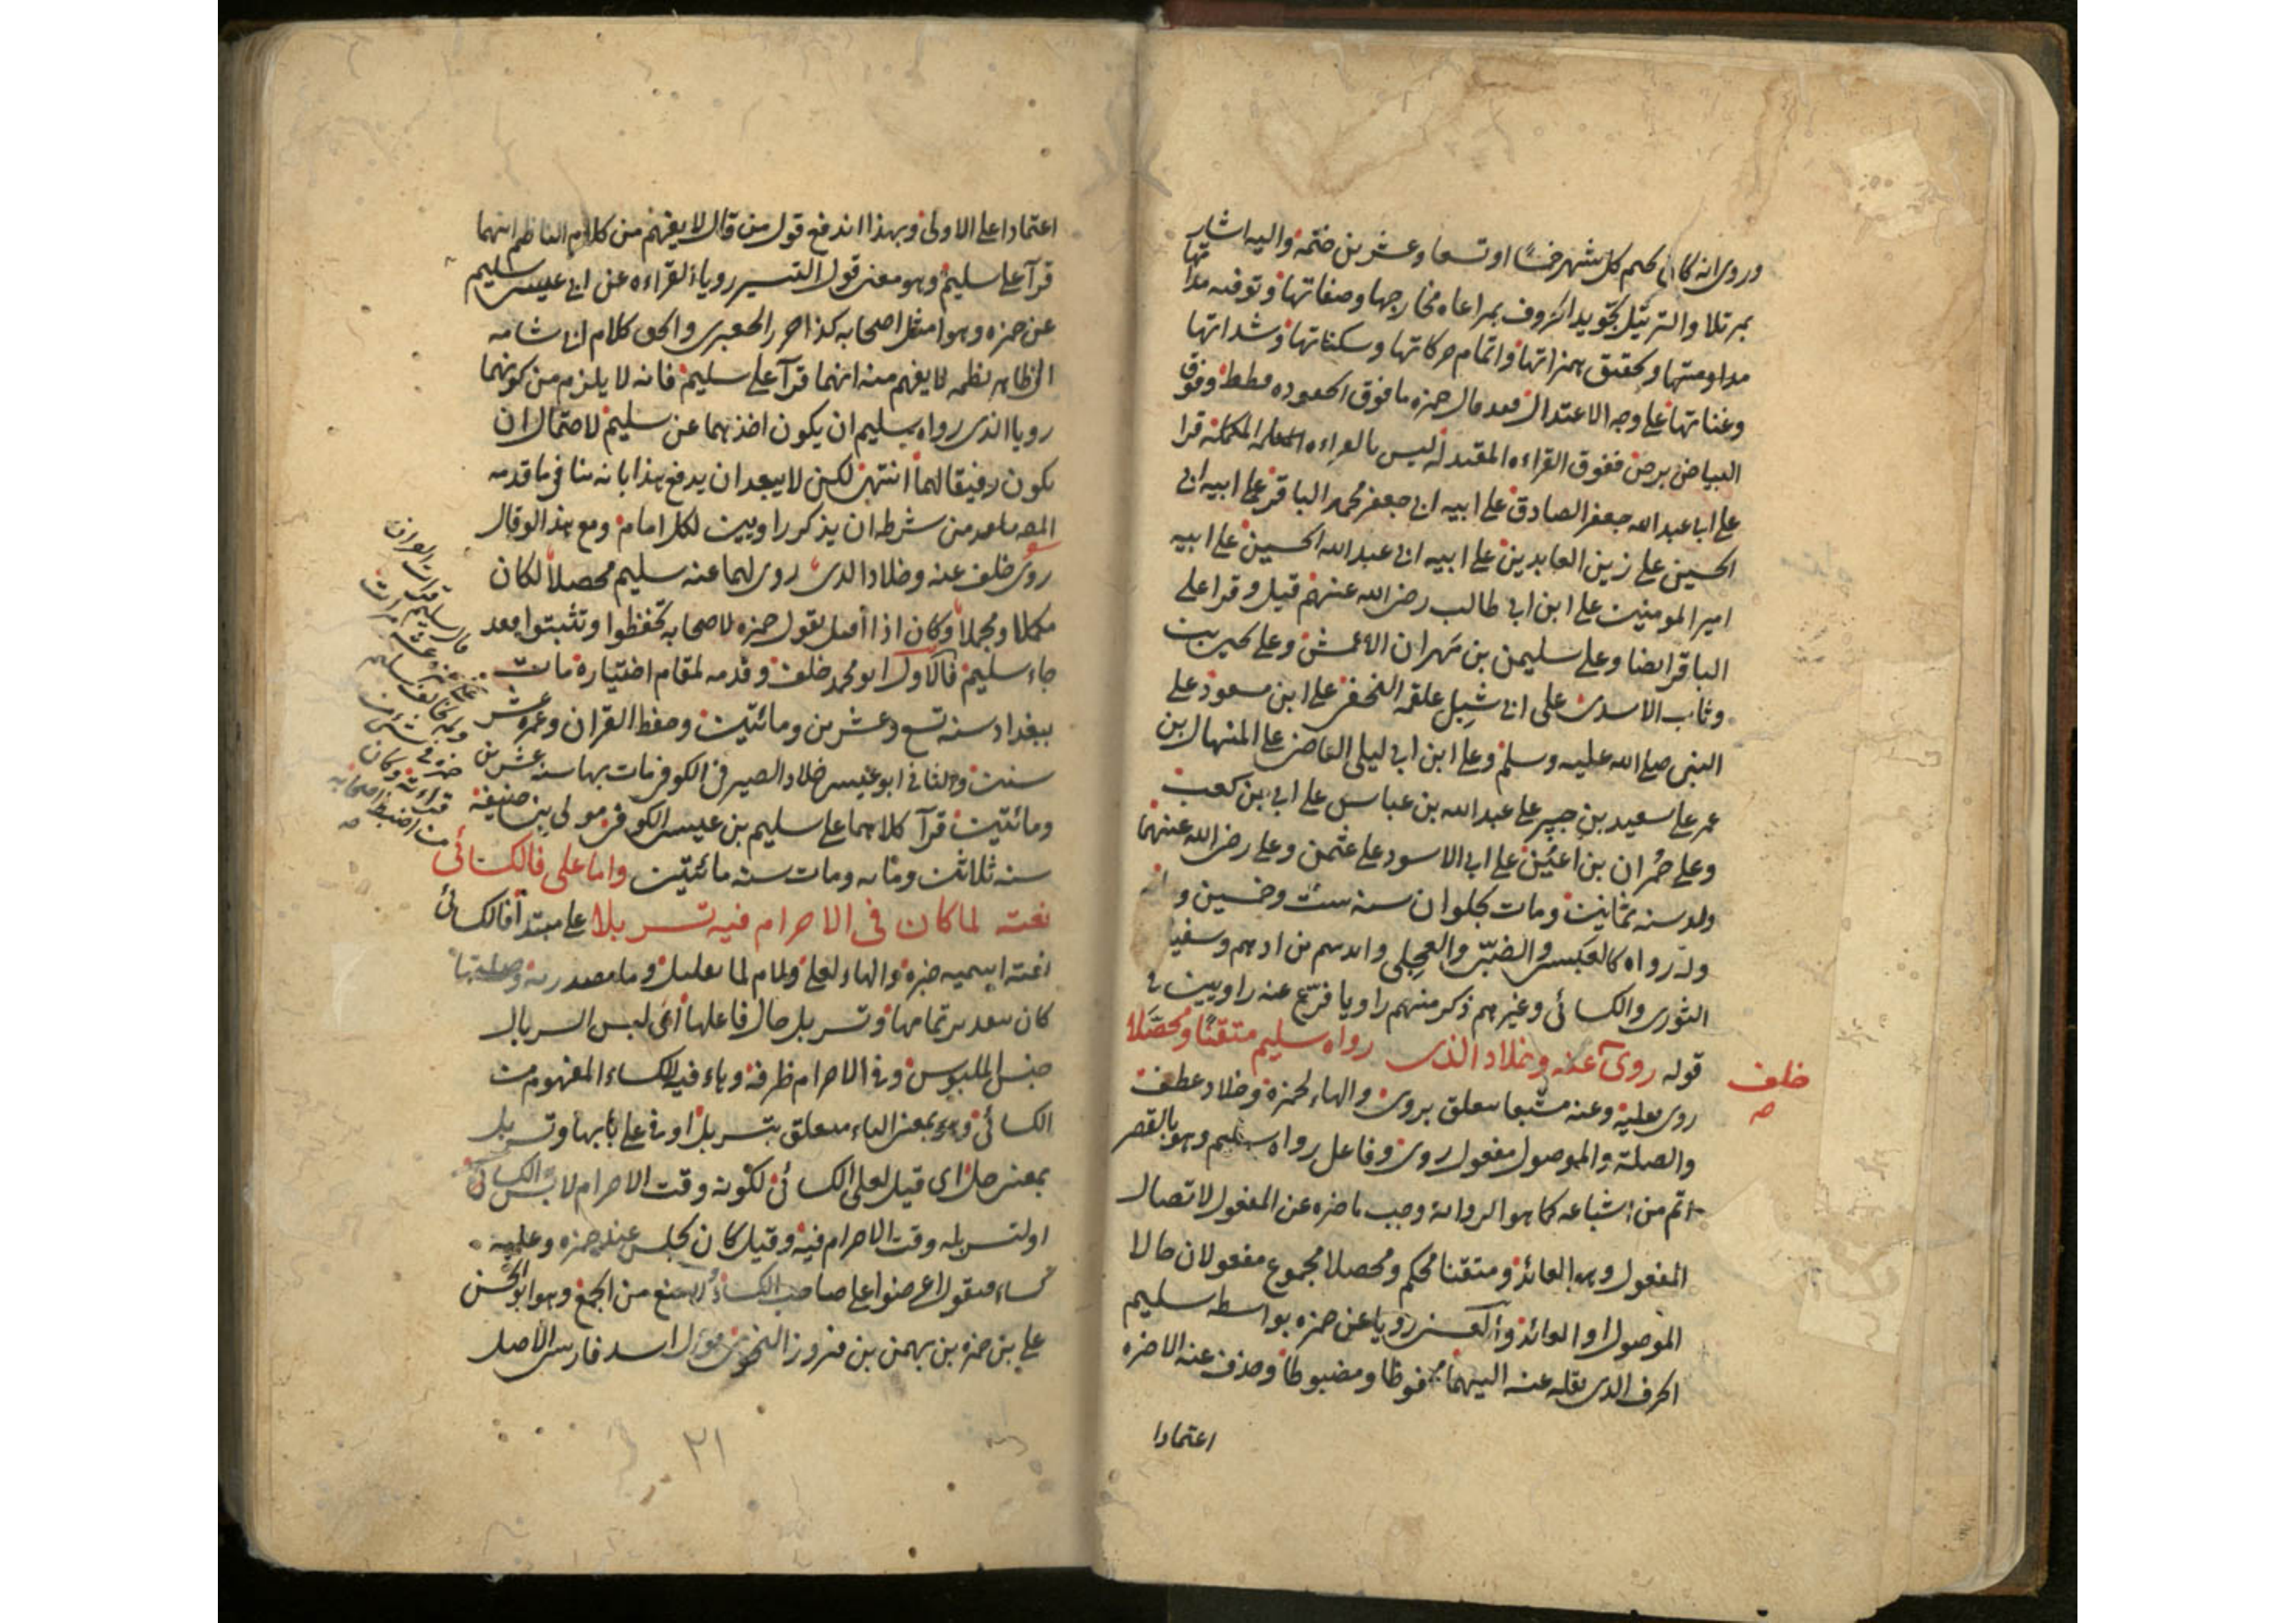 وروى انه كان يختم كل شهر خمسًا او تسعا وعشرين ختمة واليه اشار
بمرتلا والترتيل تجويد الحروف بمراعاة مخارجها وصفاتها وتوفيه مداتها
مداومتها وتحقيق همزاتها واتمام حركاتها وسكناتها وشداتها
وغناتها على وجه الاعتدال فعد قال حمزه ما فوق الجعوده قطط وفوق
البياض برص ففوق القراءه المعتدله ليس بالقراءه المكملة قرا
على ابى عبد الله جعفر الصادق على ابيه ابى جعفر محمد الباقر على ابيه ابى
الحسين على زين العابدين على ابيه ابى عبد الله الحسين على ابيه
امير المومنين على ابن ابى طالب رضى الله عنهم قيل وقرا على
الباقر ايضا وعلى سليمن بن مهران الاعمش وعلى يحيى بن
وثاب الاسدى على ابى شبل علقمه النخعى على ابن مسعود على
النبى صلى الله عليه وسلم وعلى ابن ابى ليلى القاضى على المنهال بن
عمر على سعيد بن جبير على عبد الله بن عباس على ابى بن كعب
وعلى حُمران بن اعين على ابى الاسود على عثمن وعلى رضى الله عنهما
ولد سنة ثمانين ومات بحلوان سنة ست وخمسين و
وله رواه كالعبسى والضبّى والعجلى وابرهيم بن ادهم وسفيا
الثورى والكسائى وغيرهم ذكر منهم راويا فرّع عنه راويين فى
قوله روى عنه وخلاد الذى رواه سليم متقنًا ومحصّلا
خلف
صح
روى بعليه وعنه مشبعا متعلق بروى والهاء لحمزة وخلاد عطف
والصلة والموصول مفعول روى وفاعل رواه سليم وهو بالقصر
اتم من اشباعه كما هو الرواية وجب تاخره عن المفعول لاتصال
المفعول وبه العائد ومتقنا محكم ومحصلا مجموع مفعولان حالا
الموصول او العائد والمعنى رويا عن حمزه بواسطه سليم
الحرف الذى نقله عنه اليهما محفوظا ومضبوطا وحذف عنه الاخره
اعتمادا
اعتمادا على الاولى وبهذا اندفع قول من قال لا يفهم من كلام الناظم انهما
قرآ على سليم وهو معنى قول التيسير رويا القراءه عن ابى عيسى سليم
عن حمزه وهو امثل اصحابه كذا حرر الجعبرى والحق كلام ابى شامه
الظاهر نظمه لا يفهم منه انهما قرآ على سليم فانه لا يلزم من كونهما
رويا الذى رواه سليم ان يكون اخذهما عن سليم لاحتمال ان
يكون رفيقا لهما انتهى لكن لا يبعد ان يدفع هذا بانه ينافى ما قدمه
المص من شرطه ان يذكر راويين لكل امام ومع هذا لو قال
روى خلف عنه وخلاد الذى روى لهما عنه سليم محصلا لكان
مكملا ومجملا وكان اذا اقبل يقول حمزه لاصحابه تحفظوا وتثبتوا فعد
جاء سليم فالاول ابو محمد خلف وقدمه لمقام اختياره مات
ببغداد سنة تسع وعشرين ومائتين وحفظ القران وعمره عشر
سنين والثانى ابو عيسى خلاد الصيرفى الكوفى مات بها سنة عشرين
ومائتين قرآ كلاهما على سليم بن عيسى الكوفى مولى بنى حنيفة
سنه ثلاثين وماىه ومات سنه مائتين واما على فالكسائى
نعته لما كان فى الاحرام فيه تسربلا على مبتدأ فالكسائى
نعته اسميه خبره والهاء لعلى ولام لما تعليل وما مصدريه وصلتها
كان بعد برتمامها وتسربل حال فاعلها اى لبس السربال
جنس الملبوس وفى الاحرام ظرفه وهاء فيه للكساء المفهوم من
الكسائى وهو بمعنى الباء متعلق بتسربل او فى على بابها وتسربل
بمعنى حل اى قيل لعلى الكسائى لكونه وقت الاحرام لابس الكسائى
او لتسربله وقت الاحرام فيه وقيل كان يجلس عند حمزه وعليه
كساء فيقول اعرضوا على صاحب الكساء وهو ابو الحسن
على بن حمزه بن بهمن بن فيروز النحوى مولى اسد فارسى الاصل
قال سليم قرات القران
على حمزه عشر مرات
ولم يخالف سليم
حمزه فى شئ من
قراءته وكان
من اضبط اصحابه
صح
٢١